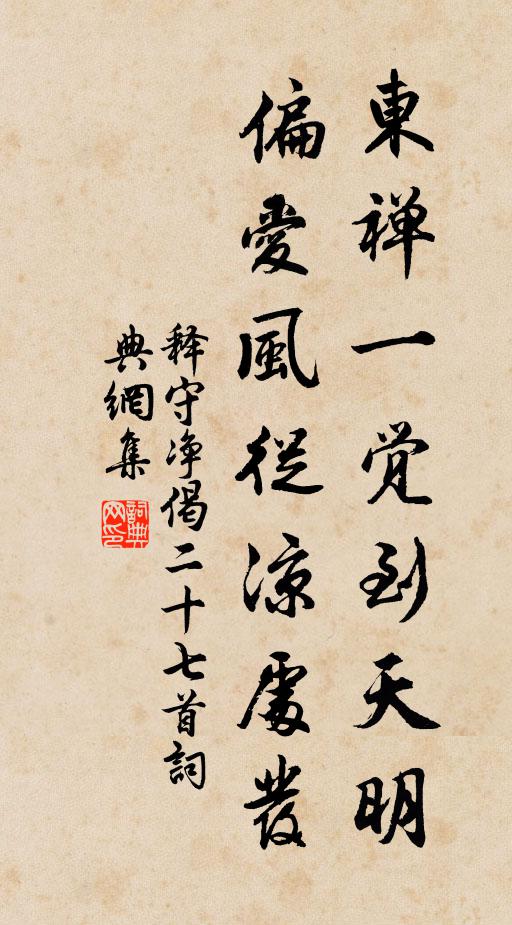 東禅一觉到天明
偏愛風從凉處發
释守净偈二十七首詞
典網集
詞典網印